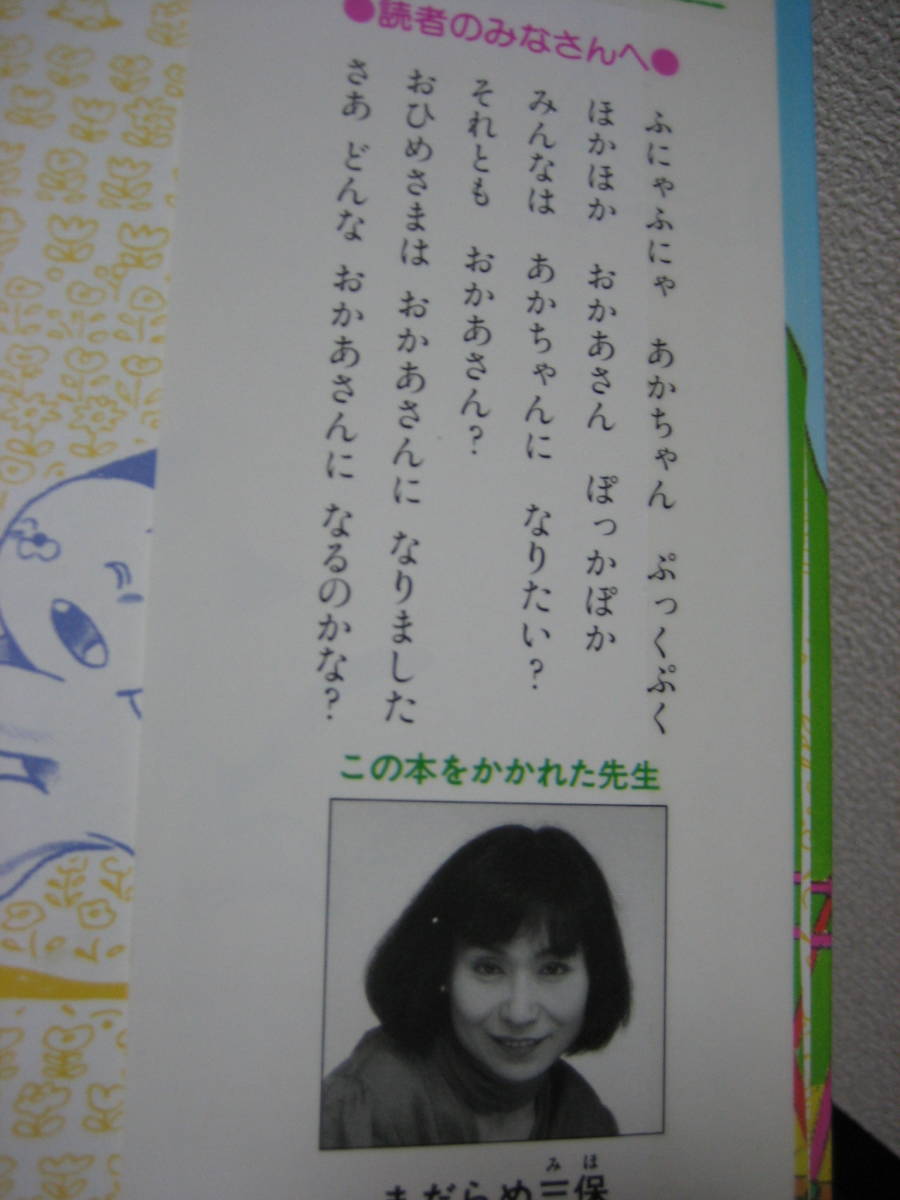 ●読者のみなさんへ●
ふにゃふにゃ　あかちゃん　ぷっくぷく
ほかほか　おかあさん　ぽっかぽか
みんなは　あかちゃんに　なりたい？
それとも　おかあさん？
おひめさまは　おかあさんに　なりました
さあ　どんな　おかあさんに　なるのかな？
この本をかかれた先生
みほ
まだらめ三保